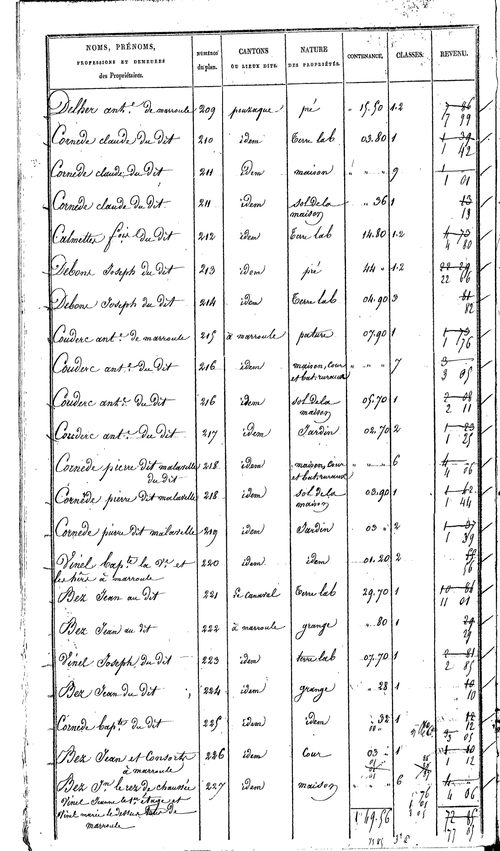 NOMS, PRÉNOMS, PROFESSIONS ET DEMEURES des Propriétaires. NUMÉROS du plan. CANTONS OU LIEUX DITS. NATURE DES PROPRIÉTÉS. CONTENANCE. CLASSES. REVENU.
Delher ant.e de marroule 209 pouzaque pré " 15.50 1.2 7 86 7 99
Cornede claude du dit 210 idem Terre lab 03.80 1 1 39 1 42
Cornede claude du dit 211 idem maison " " " 9 1 1 01
Cornede claude du dit 211 idem sol de la maison " " 36 1 13 13
Calmettes fois du dit 212 idem Terre lab 14.80 1.2 4 73 4 80
Debons Joseph du dit 213 idem pré 44 " 1.2 22 29 22 66
Debons Joseph du dit 214 idem Terre lab 04.90 3 81 82
Couderc ant.e de marroule 215 à marroule pature 07.90 1 1 73 1 76
Couderc ant.e du dit 216 idem maison, cour et bat. ruraux " " " 7 3 3 05
Couderc ant.e du dit 216 idem sol de la maison 05.70 1 2 08 2 11
Couderc ant.e du dit 217 idem Jardin 02.70 2 1 23 1 25
Cornede pierre dit malaselle du dit 218 idem maison, cour et bat. ruraux " " " 6 4 4 06
Cornede pierre dit malaselle 218 idem sol de la maison 03.90 1 1 42 1 44
Cornede pierre dit malaselle 219 idem Jardin 03 " 2 1 37 1 39
Vinel bap.te la V.e et les hers à marroule 220 idem idem 01.20 2 55 56
Bez Jean au dit 221 Terre lab 29.70 1 11 01
Bez Jean au dit 222 à marroule grange " 80 1 29 29
Vinel Joseph du dit 223 idem terre lab 07.70 1 2 81 2 85
Bez Jean du dit 224 idem grange " 28 1 10 10
Cornede bap.te du dit 225 idem idem " 32 1 12 12
Bez Jean et Consorts à marroule 226 idem Cour 03 " 1 1 10 1 12
Bez J.n le rez de chaussée 227 idem maison " " 6 4 4 06
Vinel Jeanne le 1er étage et
Vinel marie le dessus de
marroule 1 49.56 72 85 77 05